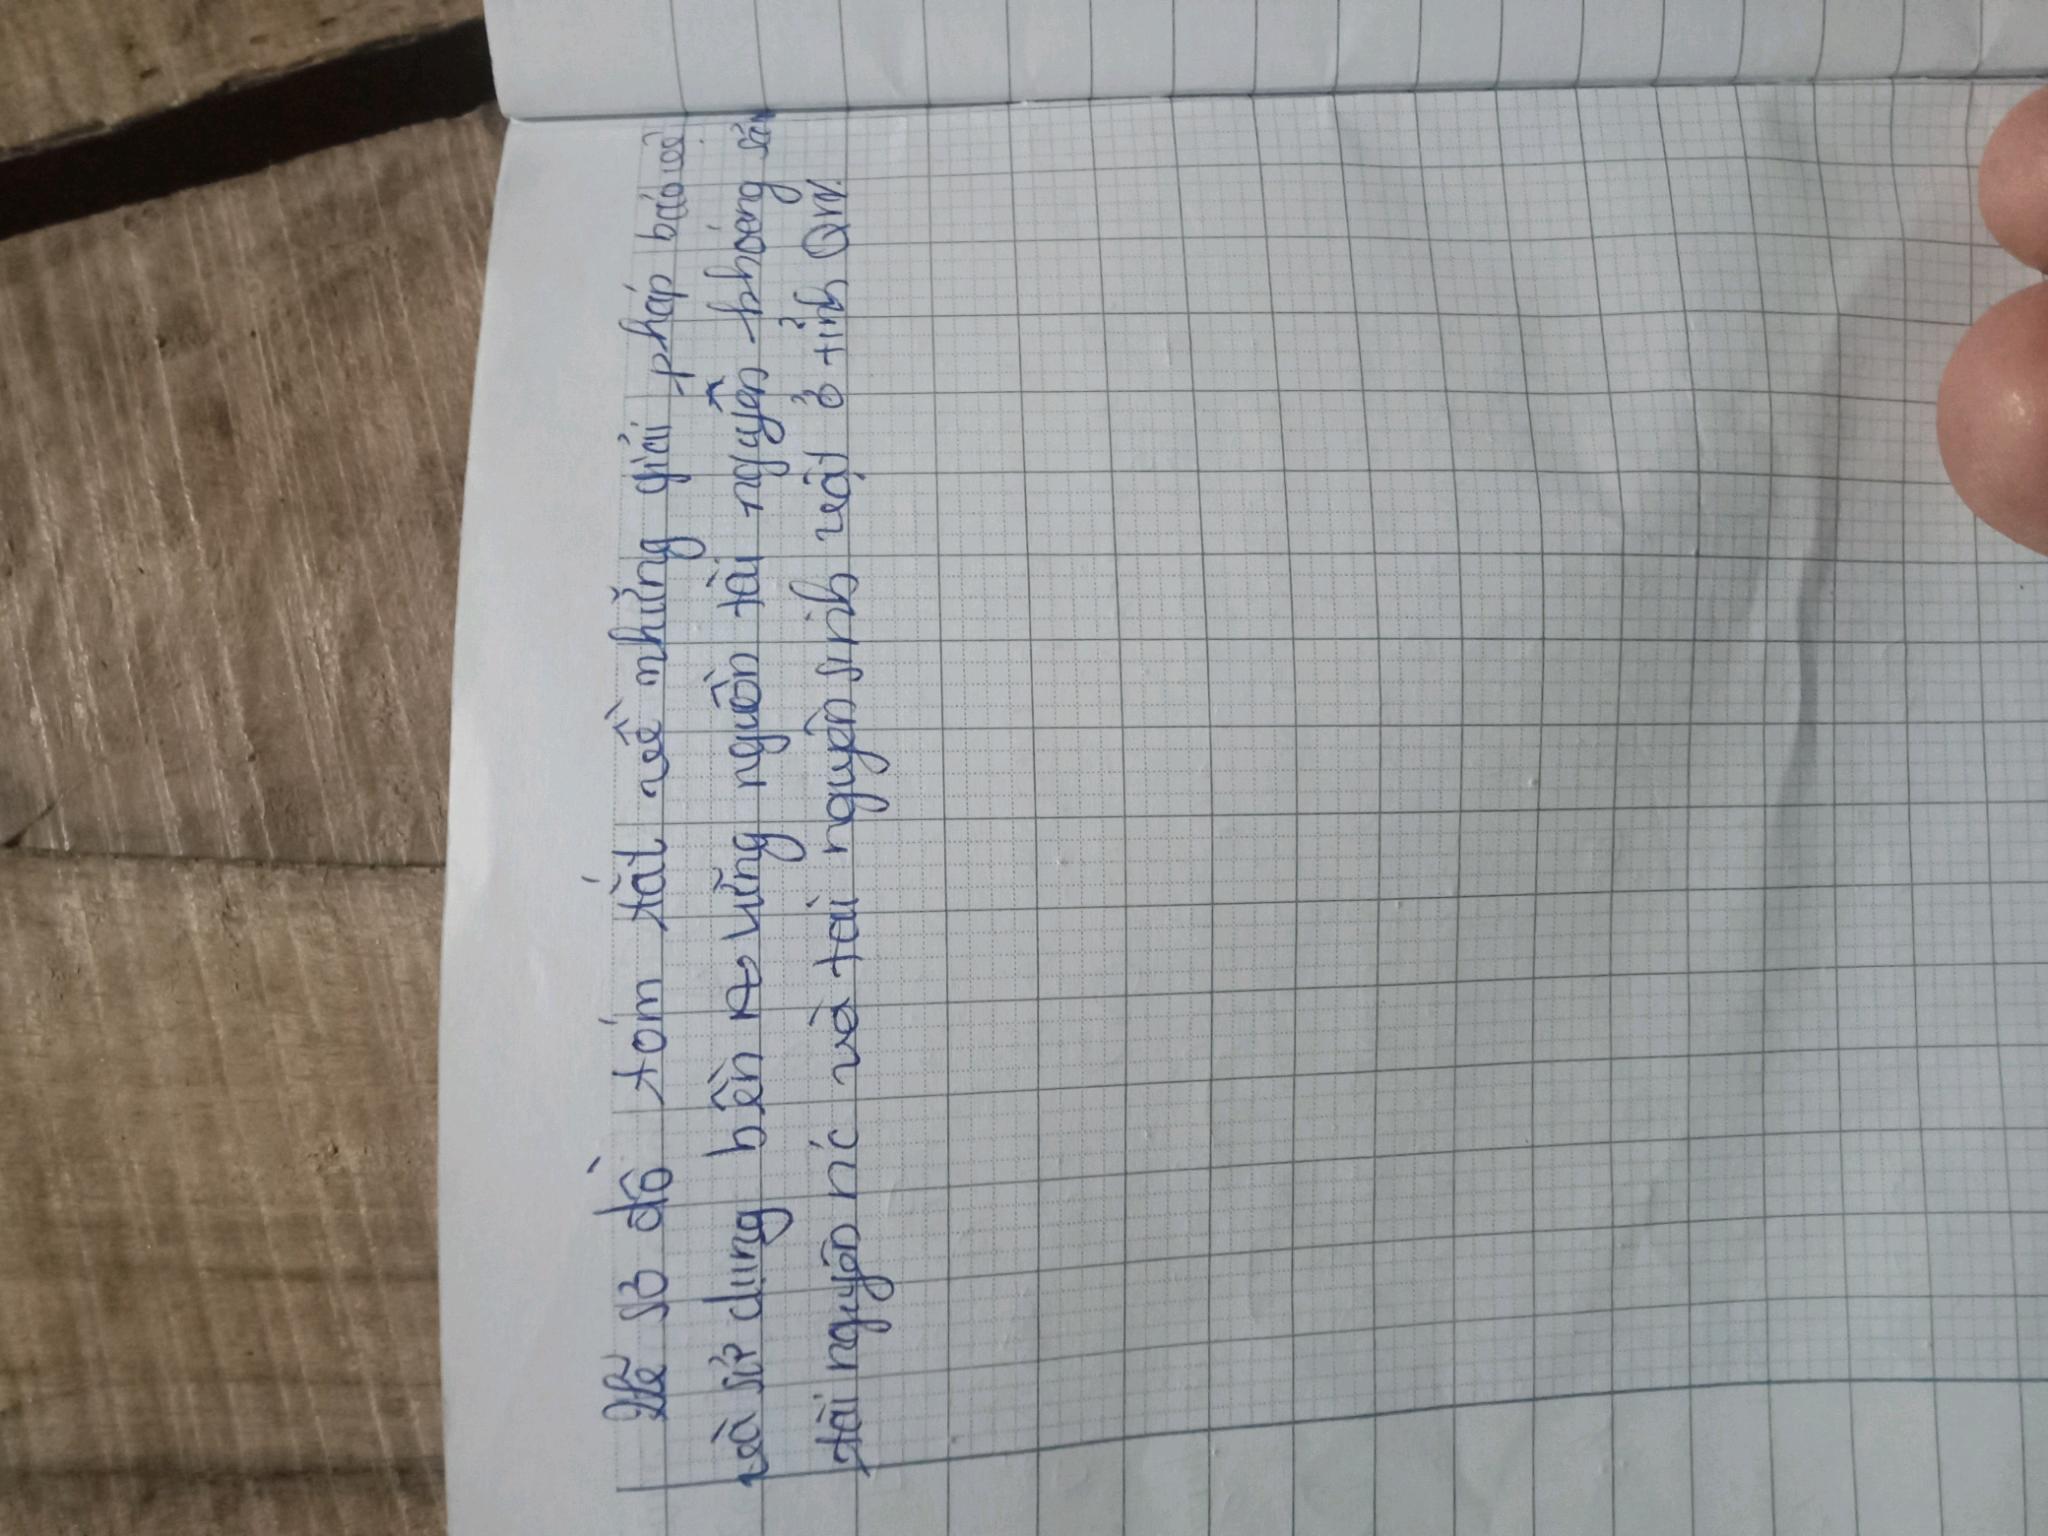 Vẽ sơ đồ tóm tắt về những giải pháp bảo vệ
và sử dụng bền vững nguồn tài nguyên khoáng sản
tài nguyên nc và tài nguyên sinh vật ở tỉnh QN.